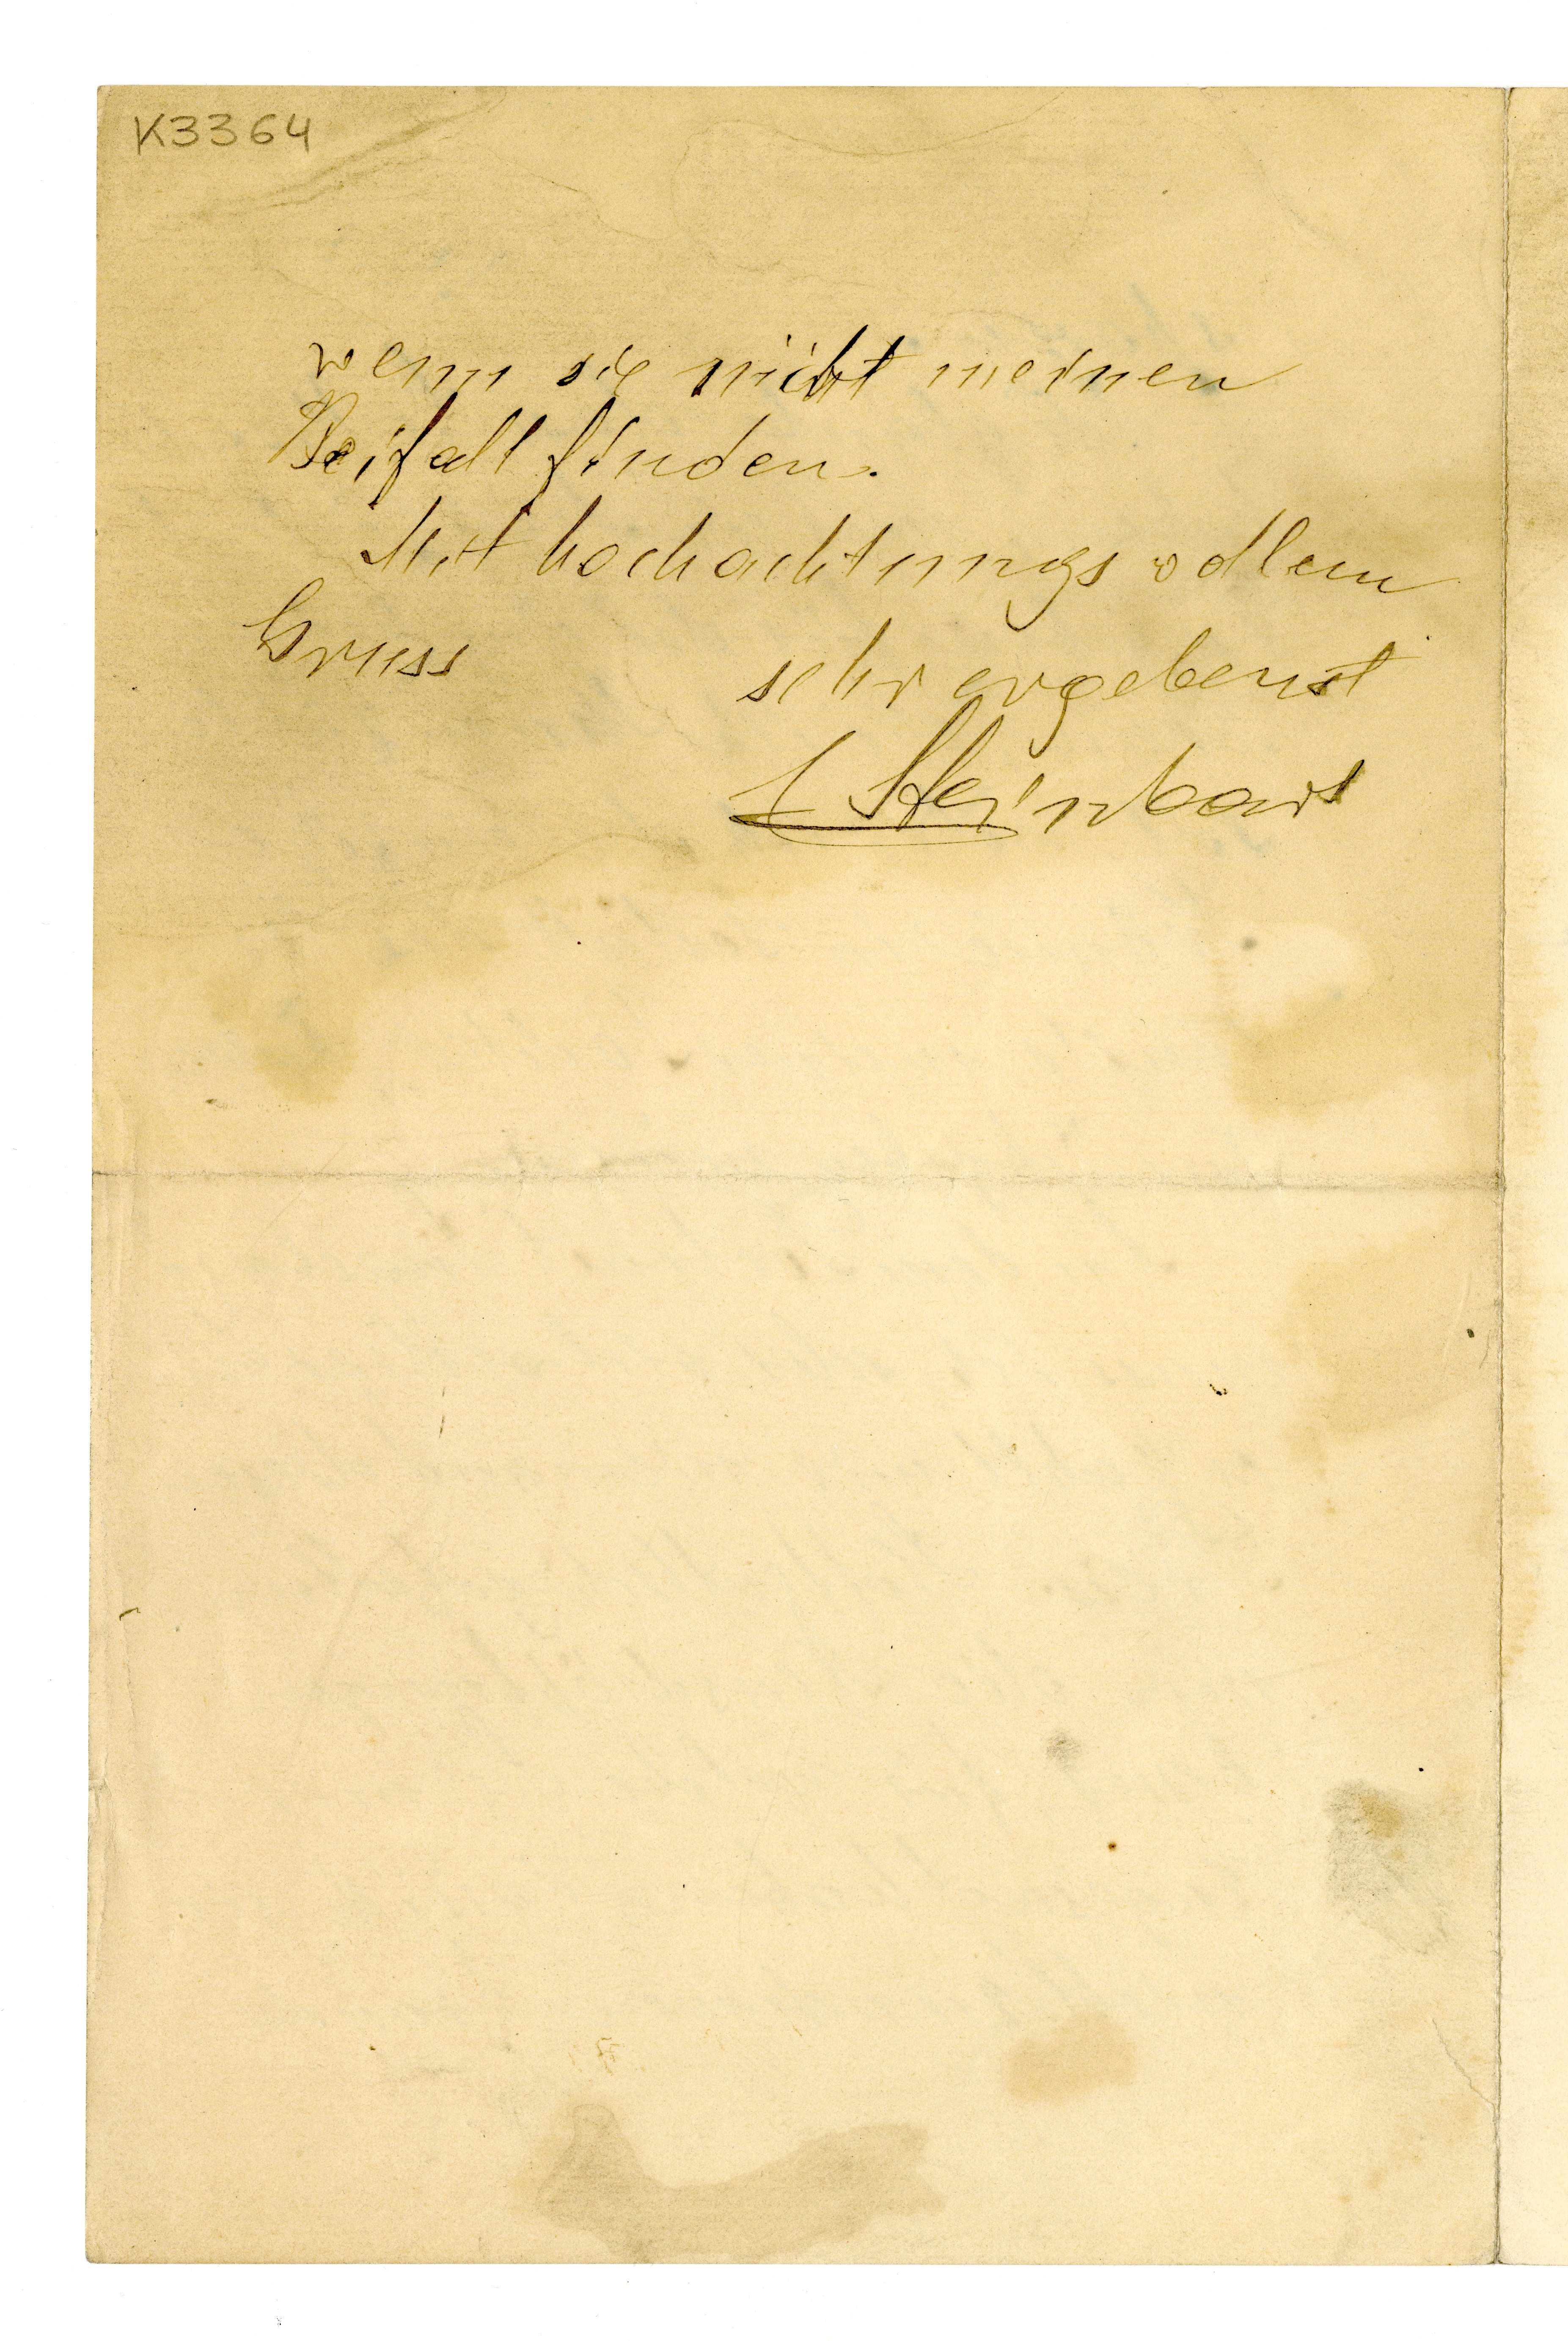 K3364
wenn sie nicht meinen
Beifall finden.
Mit hochachtungsvollem
Gruss
sehr ergebenst
Steinbart